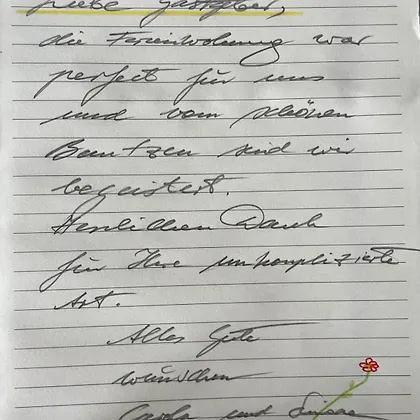 Liebe Gastgeber,
die Ferienwohnung war
perfekt für uns
und vom schönen
Bautzen sind wir
begeistert.
Herzlichen Dank
für Ihre unkomplizierte
Art.
Alles Gute
wünschen
Carola und